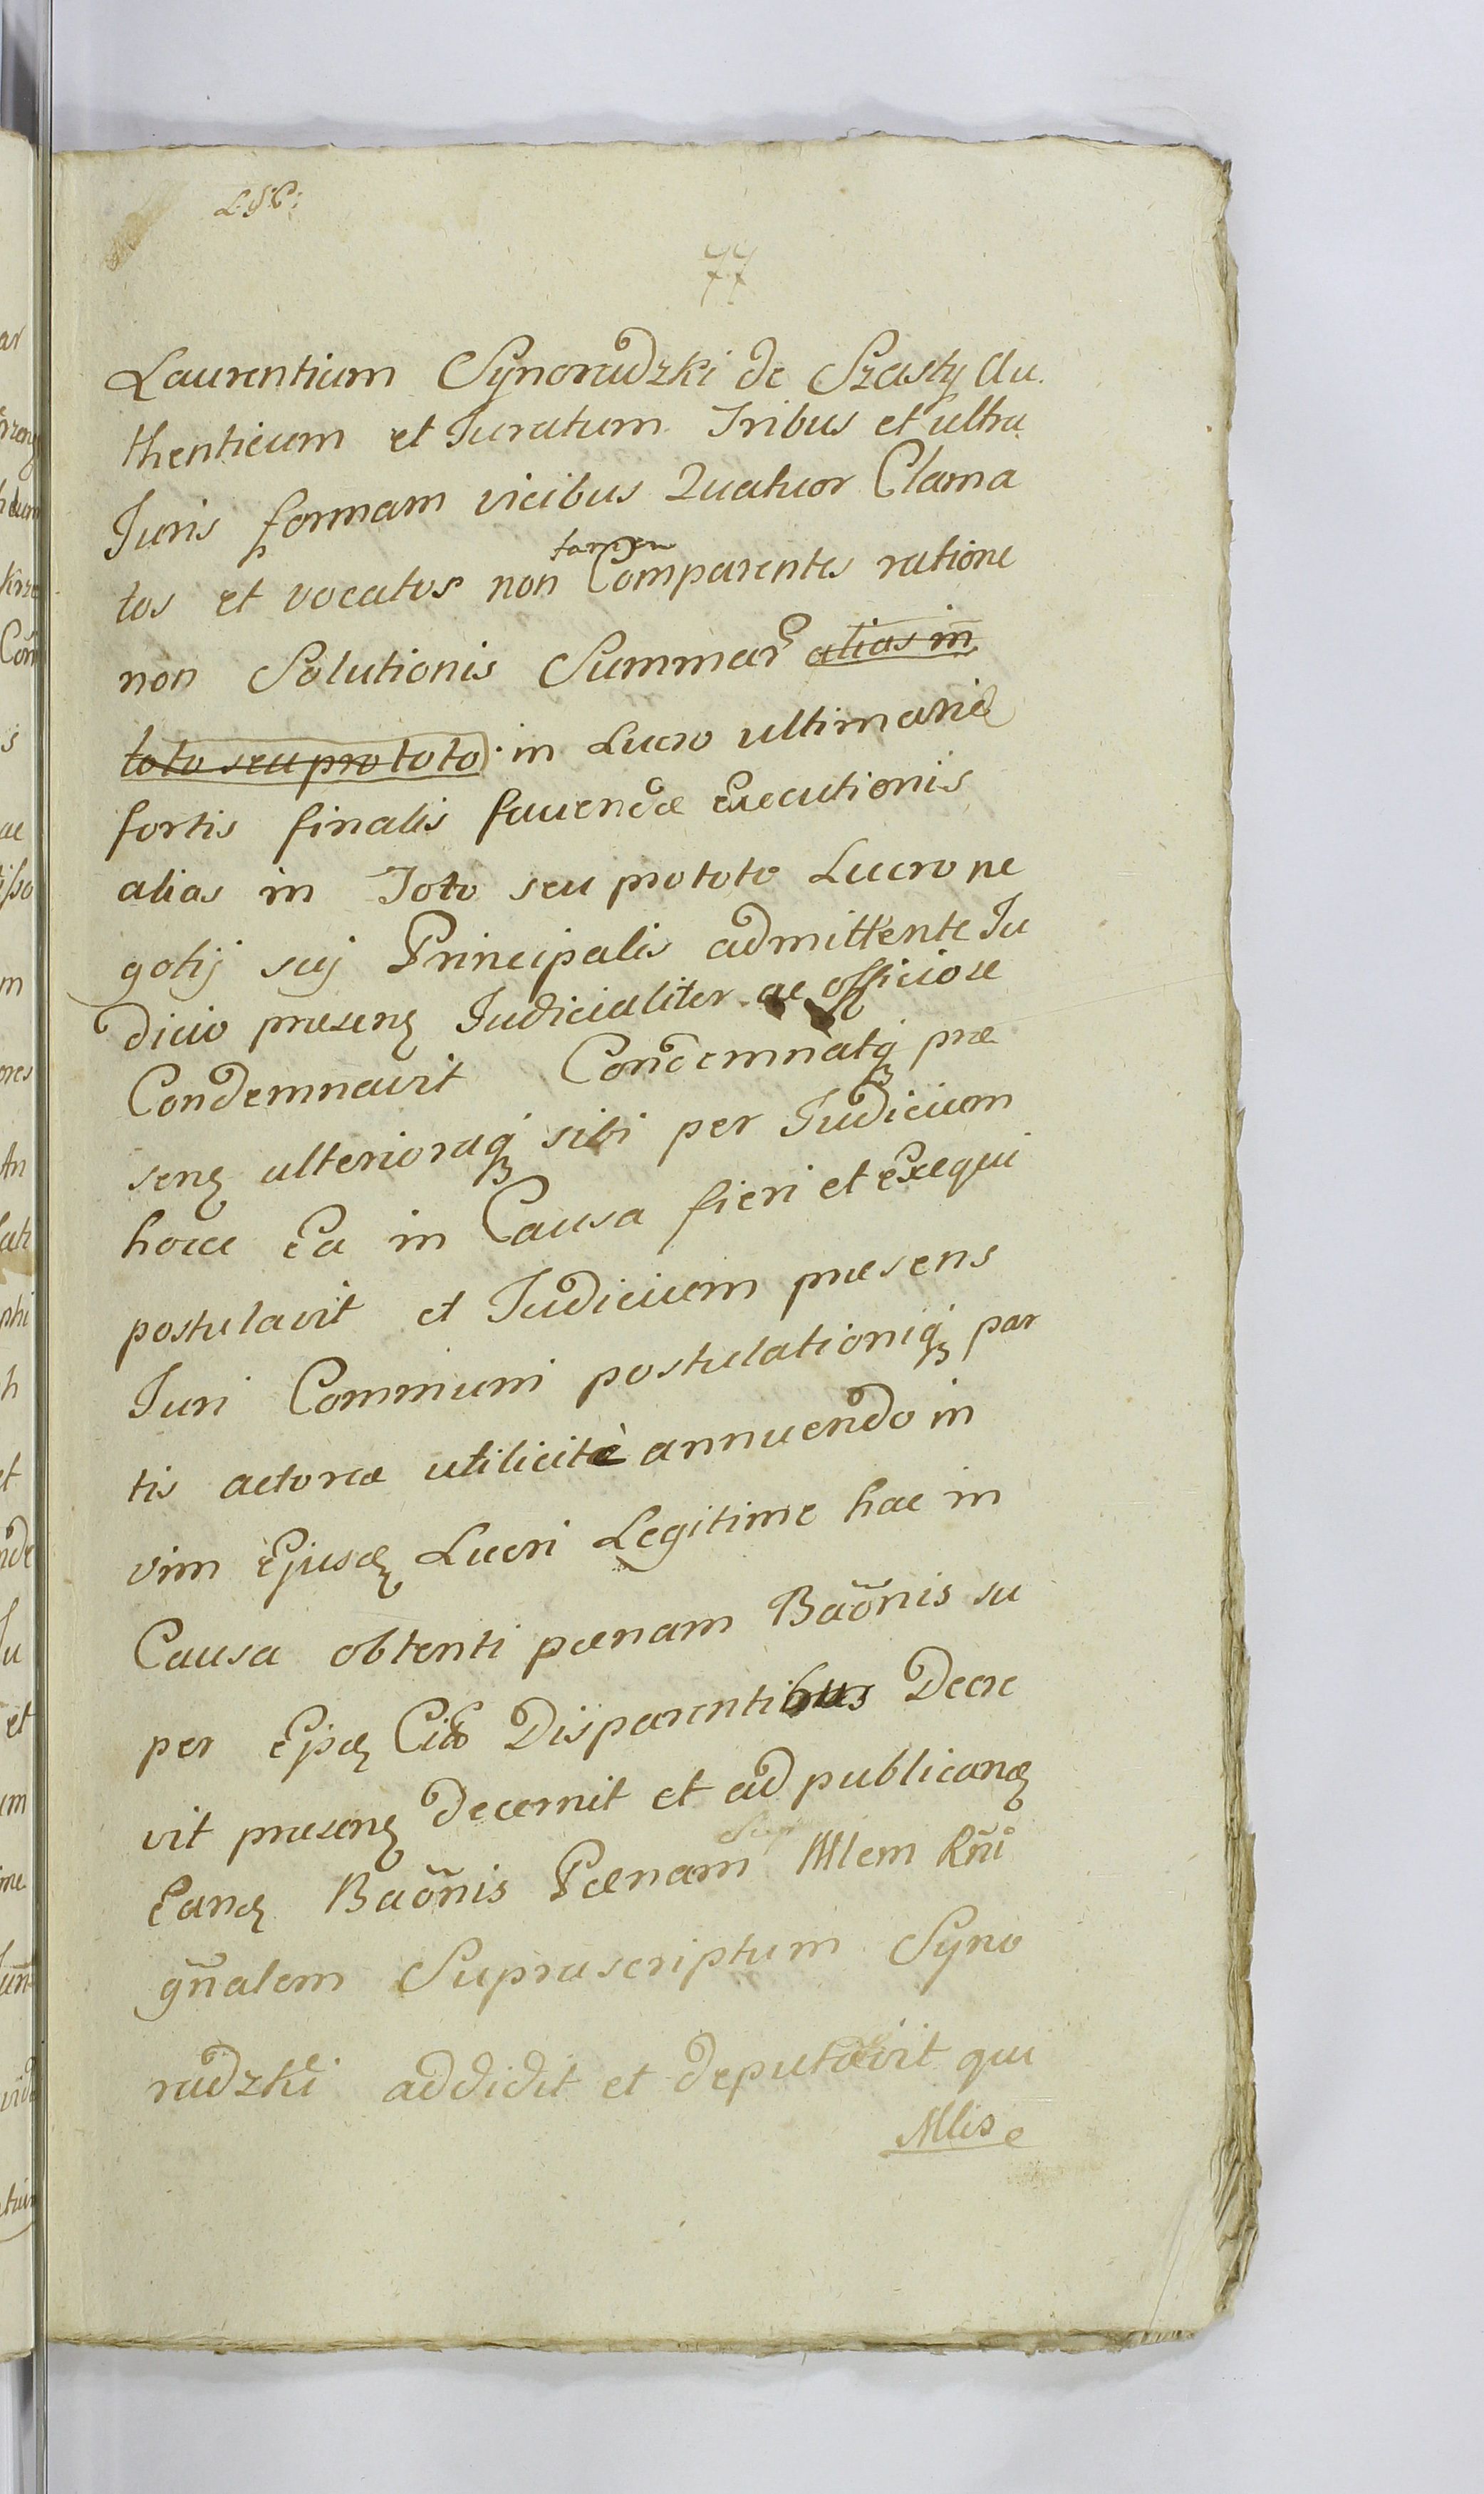 77
Laurentium Synoradzki de Szasty Au
thenticum et Juratum Tribus et ultra
Juris formam vicibus Quatuor Clama
tos et vocatos non tamen Comparentes ratione
non Solutionis Summar alias in
toto seu pro toto in Lucro ultimaria
sortis finalis favendæ executionis
alias in Toto seu pro toto Lucro ne
gotij suj Principalis admittente Ju
dicio præsenꝫ Judicialiter ac officiose
Condemnavit Condemnatqꝫ præ
senꝫ ulterioraqꝫ sibi per Judicium
hocce Ea in Causa fieri et Exequi
postulavit et Judicium præsens
Juri Communi postulationiqꝫ par
tis actoreæ utilicitè annuendo in
vim Ejusdꝫ Lucri Legitime hac in
Causa obtenti pœnam Baõnis su
per Disparentibus Decre
vit præsenꝫ decernit et ad publicandꝫ
Eandꝫ Baõnis Pœnam Mlem Rñi
gñalem Suprascriptum Syno
radzki addidit et deputavit qui
Mlis